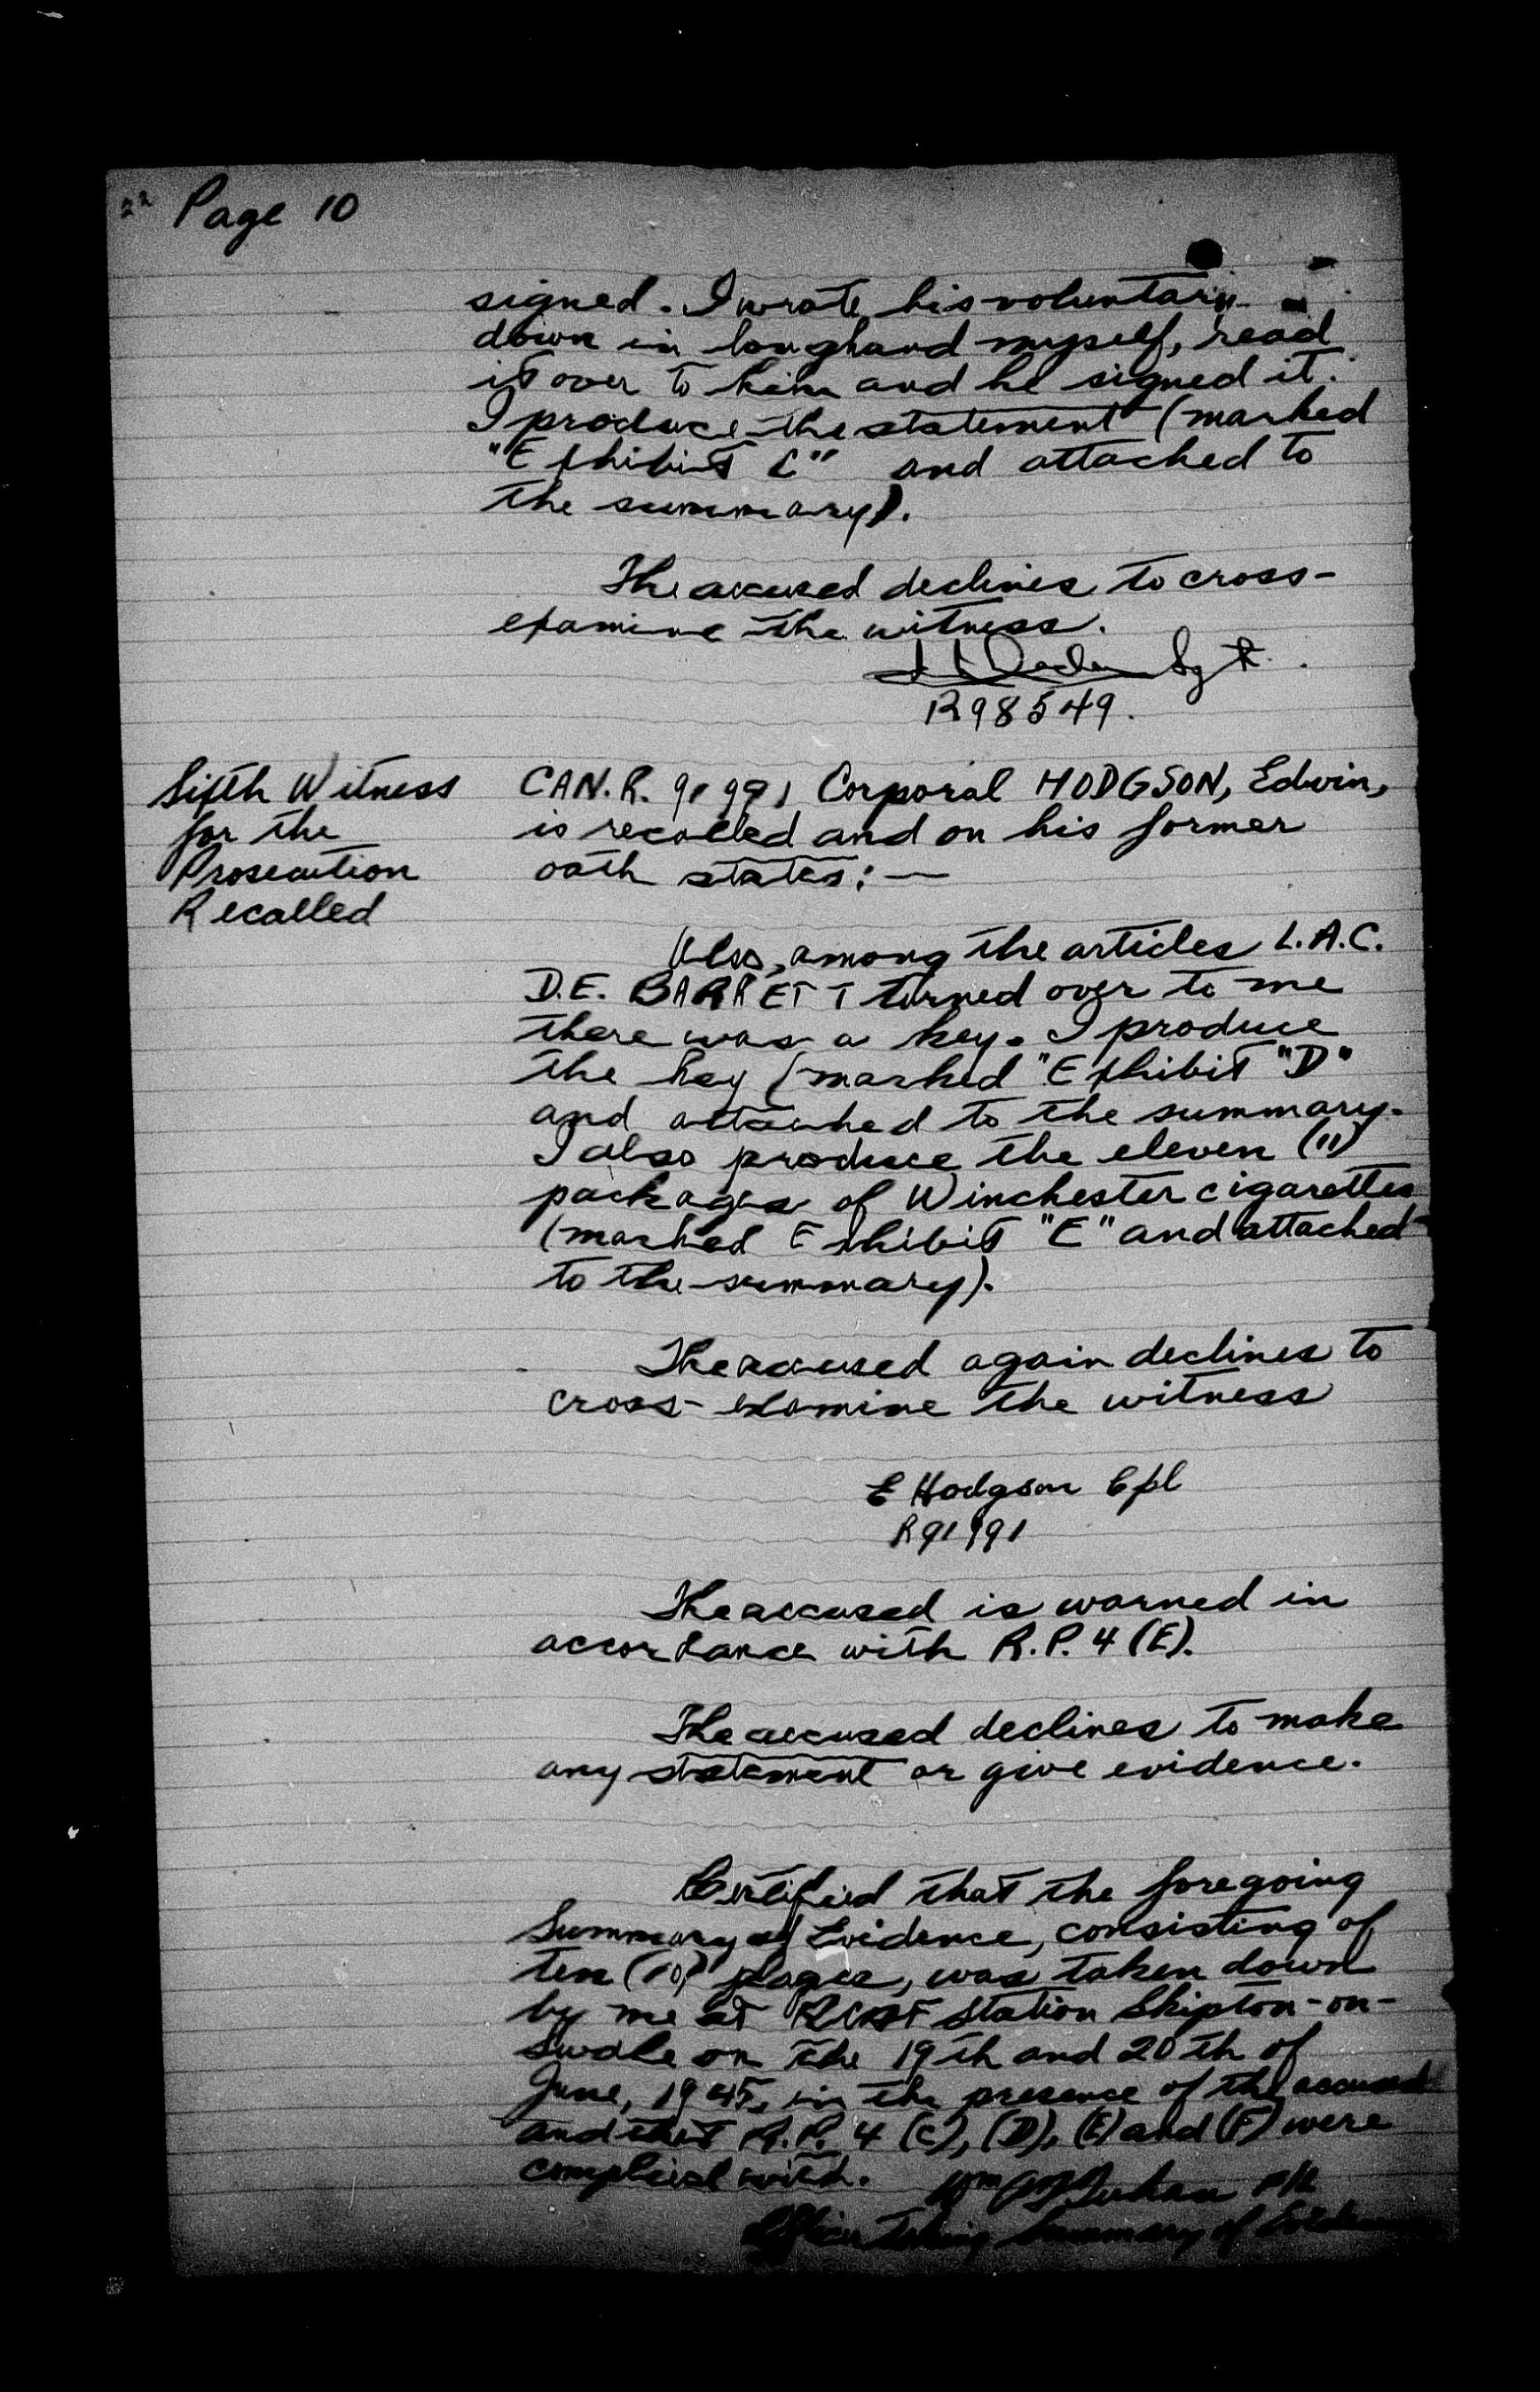 22 Page 10
signed. I wrote his voluntary
down in longhand myself, read
it over to him and he signed it.
I produce the statement (marked
"Exhibit C" and attached to
the summary).
The accused declines to cross-
examine the witness.
Sgt.
R98549.
Sixth Witness
for the
Prosecution
Recalled
CAN. R. 91991 Corporal HODGSON, Edwin,
is recalled and on his former
oath states: —
Also, among the articles L.A.C.
D.E. BARRETT turned over to me
there was a key. I produce
the key (marked "Exhibit "D"
and attached to the summary.
I also produce the eleven (11)
packages of Winchester cigarettes
(marked Exhibit "E" and attached
to the summary).
The accused again declines to
cross-examine the witness
E Hodgson Cpl
R91991
The accused is warned in
accordance with R.P. 4 (E).
The accused declines to make
any statement or give evidence.
Certified that the foregoing
Summary of Evidence, consisting of
ten (10) pages, was taken down
by me at RCAF Station Skipton-on-
Swale on the 19th and 20th of
June, 1945, in the presence of the accused
and that R.P. 4 (C), (D), (E) and (F) were
complied with. Wm
Officer Taking Summary of Evidence